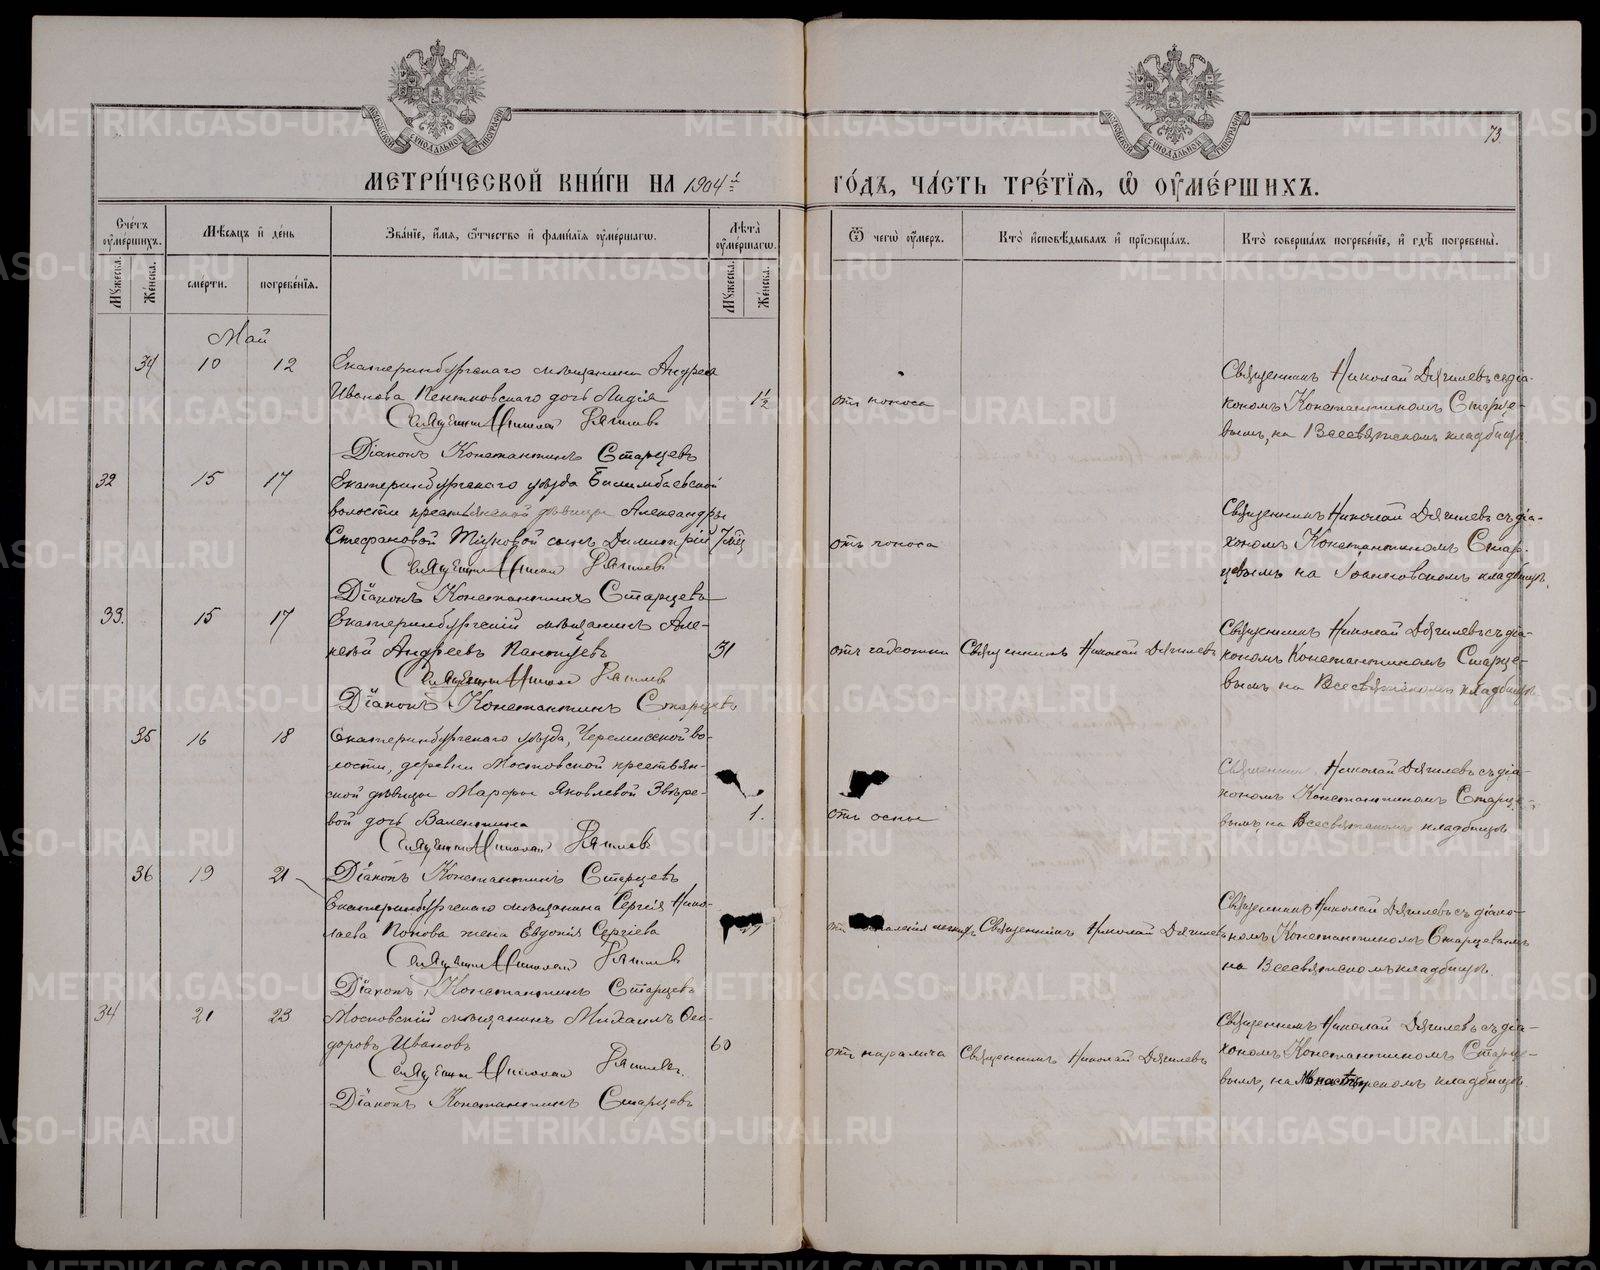 73.
МЕТРИ́ЧЕСКОЙ КНИ́ГИ НА 1904 й
ГО́ДЪ, ЧА́СТЬ ТРЕ́ТІѦ, Ѿ ОУМЕ́РШИХЪ.
Сче́тъ оуме́ршихъ.
Му́жеска.
Же́нска.
Мѣ́сяцъ и де́нь
сме́рти.
погребе́нія.
Зва́ніе, и́мя, о́тчество и фами́лія оуме́ршагѡ.
Лѣ́та оуме́ршагѡ.
Му́жеска.
Же́нска.
Ѿ чегѡ̀ оу́меръ.
Кто̀ исповѣ́дывалъ и прїѡбща́лъ.
Кто̀ соверша́лъ погребе́ніе, и гдѣ̀ погребены̀.
Май
34 10 12 Екатеринбургскаго мѣщанина Андрея
Иванова Пентковскаго дочь Лидія 1½ отъ поноса
Священникъ Николай Дягилевъ
Діаконъ Константинъ Старцевъ
Священникъ Николай Дягилевъ съ діа-
кономъ Константиномъ Старце-
вымъ, на Всесвятскомъ кладбищѣ.
32 15 17 Екатеринбургскаго уѣзда Билимбаевской
волости крестьянской дѣвицы Александры
Стефановой сынъ Димитрій 7 мѣц отъ поноса
Священникъ Николай Дягилевъ
Діаконъ Константинъ Старцевъ
Священникъ Николай Дягилевъ съ діа-
кономъ Константиномъ Стар-
цевымъ на Іоанновскомъ кладбищѣ.
33. 15 17 Екатеринбургскій мѣщанинъ Але-
ксѣй Андреевъ 31 отъ чахотки Священникъ Николай Дягилевъ
Священникъ Николай Дягилевъ
Діаконъ Константинъ Старцевъ
Священникъ Николай Дягилевъ съ діа-
кономъ Константиномъ Старце-
вымъ на Всесвятскомъ кладбищѣ
35 16 18 Екатеринбургскаго уѣзда, Черемисской во-
лости, деревни Мостовской крестьян-
ской дѣвицы Марфы Яковлевой Звѣре-
вой дочь Валентина 1. отъ оспы
Священникъ Николай Дягилевъ
Діаконъ Константинъ Старцевъ
Священникъ Николай Дягилевъ съ діа-
кономъ Константиномъ Старце-
вымъ, на Всесвятскомъ кладбищѣ
36 19 21 Екатеринбургскаго мѣщанина Сергія Нико-
лаева Попова жена Евдокія Сергіева воспаленія легкихъ Священникъ Николай Дягилевъ
Священникъ Николай Дягилевъ
Діаконъ Константинъ Старцевъ
Священникъ Николай Дягилевъ съ діако-
номъ Константиномъ Старцевымъ
на Всесвятскомъ кладбищѣ.
34 21 23 Московскій мѣщанинъ Михаилъ Ѳео-
доровъ Ивановъ 60 отъ паралича Священникъ Николай Дягилевъ
Священникъ Николай Дягилевъ.
Діаконъ Константинъ Старцевъ
Священникъ Николай Дягилевъ съ діа-
кономъ Константиномъ Старце-
вымъ, на Монастырскомъ кладбищѣ.
METRIKI.GASO-URAL.RU